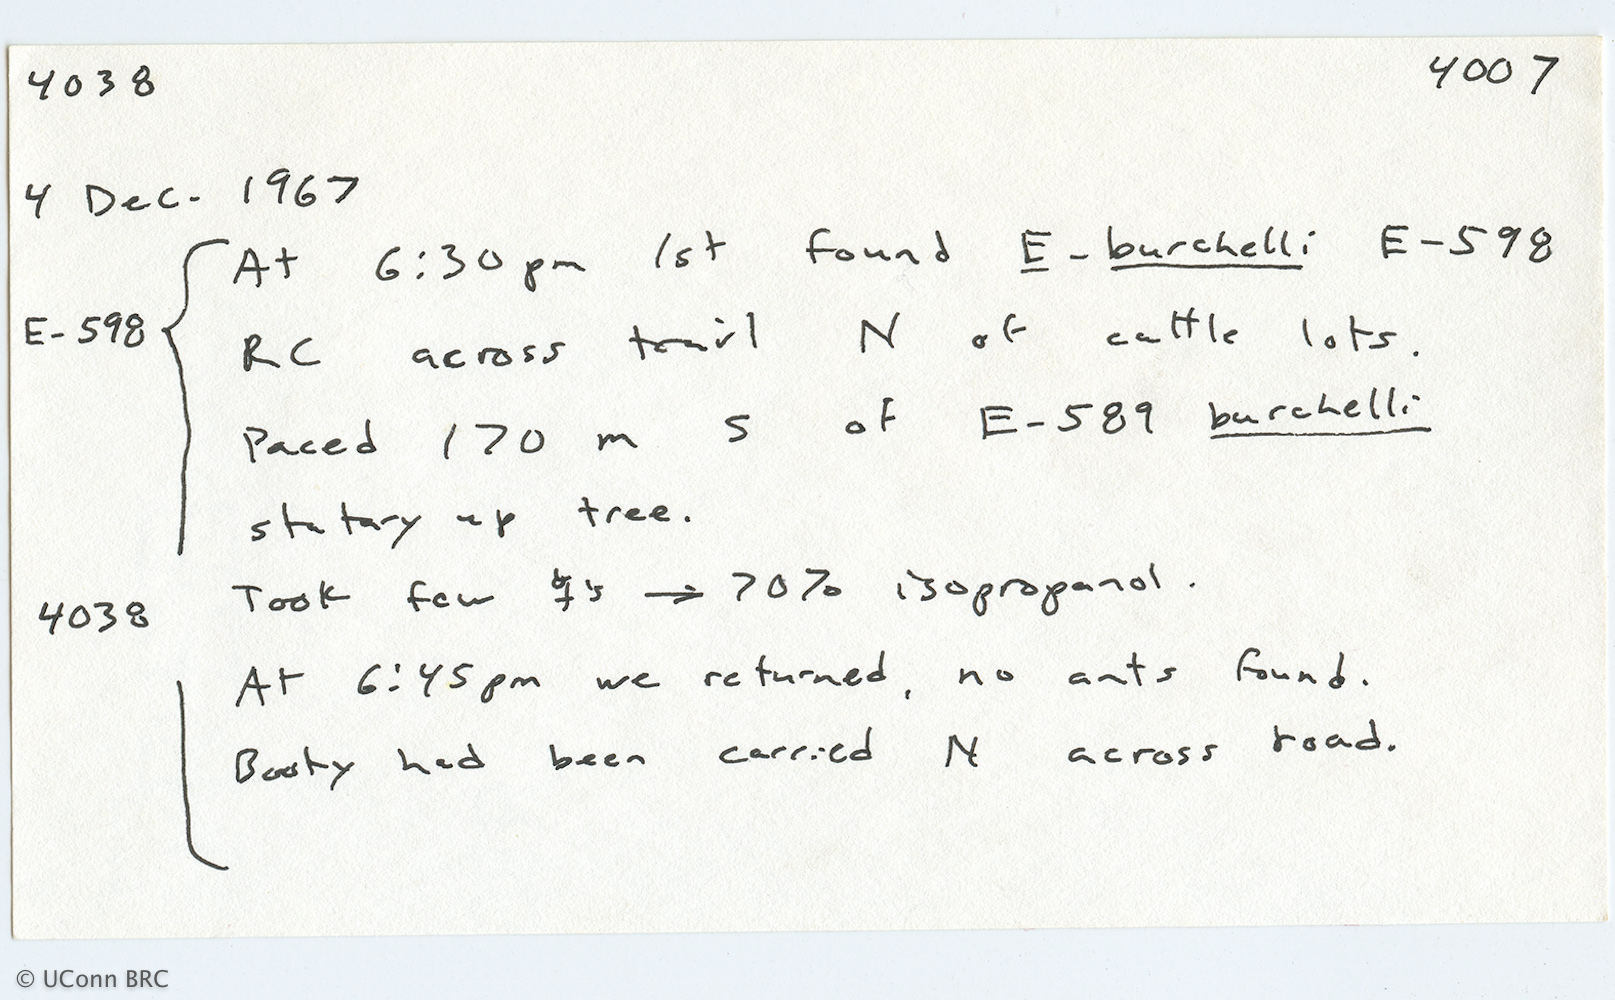 4038 4007
4 Dec. 1967
At 6:30 pm 1st found E. burchelli E-598
E-598 RC across trail N of cattle lots.
Paced 170 m S of E-589 burchelli
statary up tree.
4038 Took few ☿'s → 70% isopropanol.
At 6:45 pm we returned, no ants found.
Booty had been carried N across road.
© UConn BRC